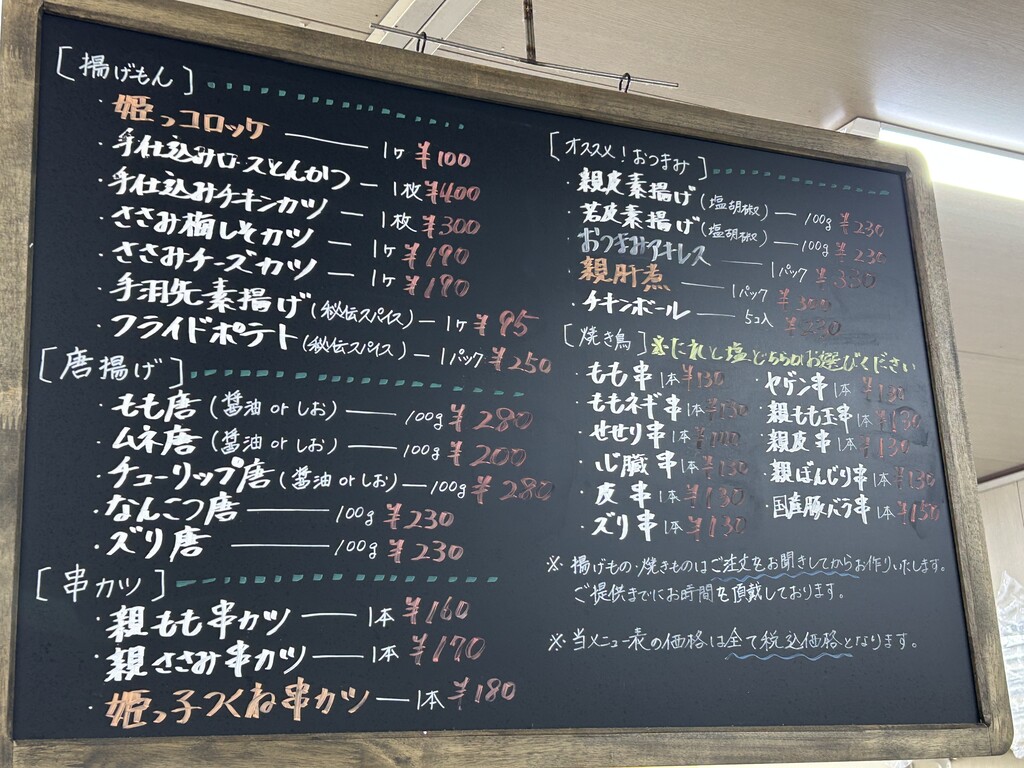 [揚げもん]
・姫っコロッケ ― 1ヶ ¥100
・手仕込みロースとんかつ ― 1枚 ¥400
・手仕込みチキンカツ ― 1枚 ¥300
・ささみ梅しそカツ ― 1ヶ ¥190
・ささみチーズカツ ― 1ヶ ¥190
・手羽先素揚げ(秘伝スパイス) ― 1ヶ ¥95
・フライドポテト(秘伝スパイス) ― 1パック ¥250
[唐揚げ]
・もも唐(醤油orしお) ― 100g ¥280
・ムネ唐(醤油orしお) ― 100g ¥200
・チューリップ唐(醤油orしお) ― 100g ¥280
・なんこつ唐 ― 100g ¥230
・ズリ唐 ― 100g ¥230
[串カツ]
・親もも串カツ ― 1本 ¥160
・親ささみ串カツ ― 1本 ¥170
・姫っ子つくね串カツ ― 1本 ¥180
[オススメ!おつまみ]
・親皮素揚げ(塩胡椒) ― 100g ¥230
・若皮素揚げ(塩胡椒) ― 100g ¥230
・おつまみアキレス ― 1パック ¥330
・親肝煮 ― 1パック ¥300
・チキンボール ― 5コ入 ¥220
[焼き鳥] ※たれと塩どちらかお選びください
・もも串 1本 ¥130
・ももネギ串 1本 ¥130
・せせり串 1本
・心臓串 1本 ¥130
・皮串 1本 ¥130
・ズリ串 1本 ¥130
・ヤゲン串 1本 ¥130
・親もも玉串 1本 ¥130
・親皮串 1本 ¥130
・親ぼんじり串 1本 ¥130
・国産豚バラ串 1本 ¥150
※揚げもの・焼きものはご注文をお聞きしてからお作りいたします。
ご提供までにお時間を頂戴しております。
※当メニュー表の価格は全て税込価格となります。